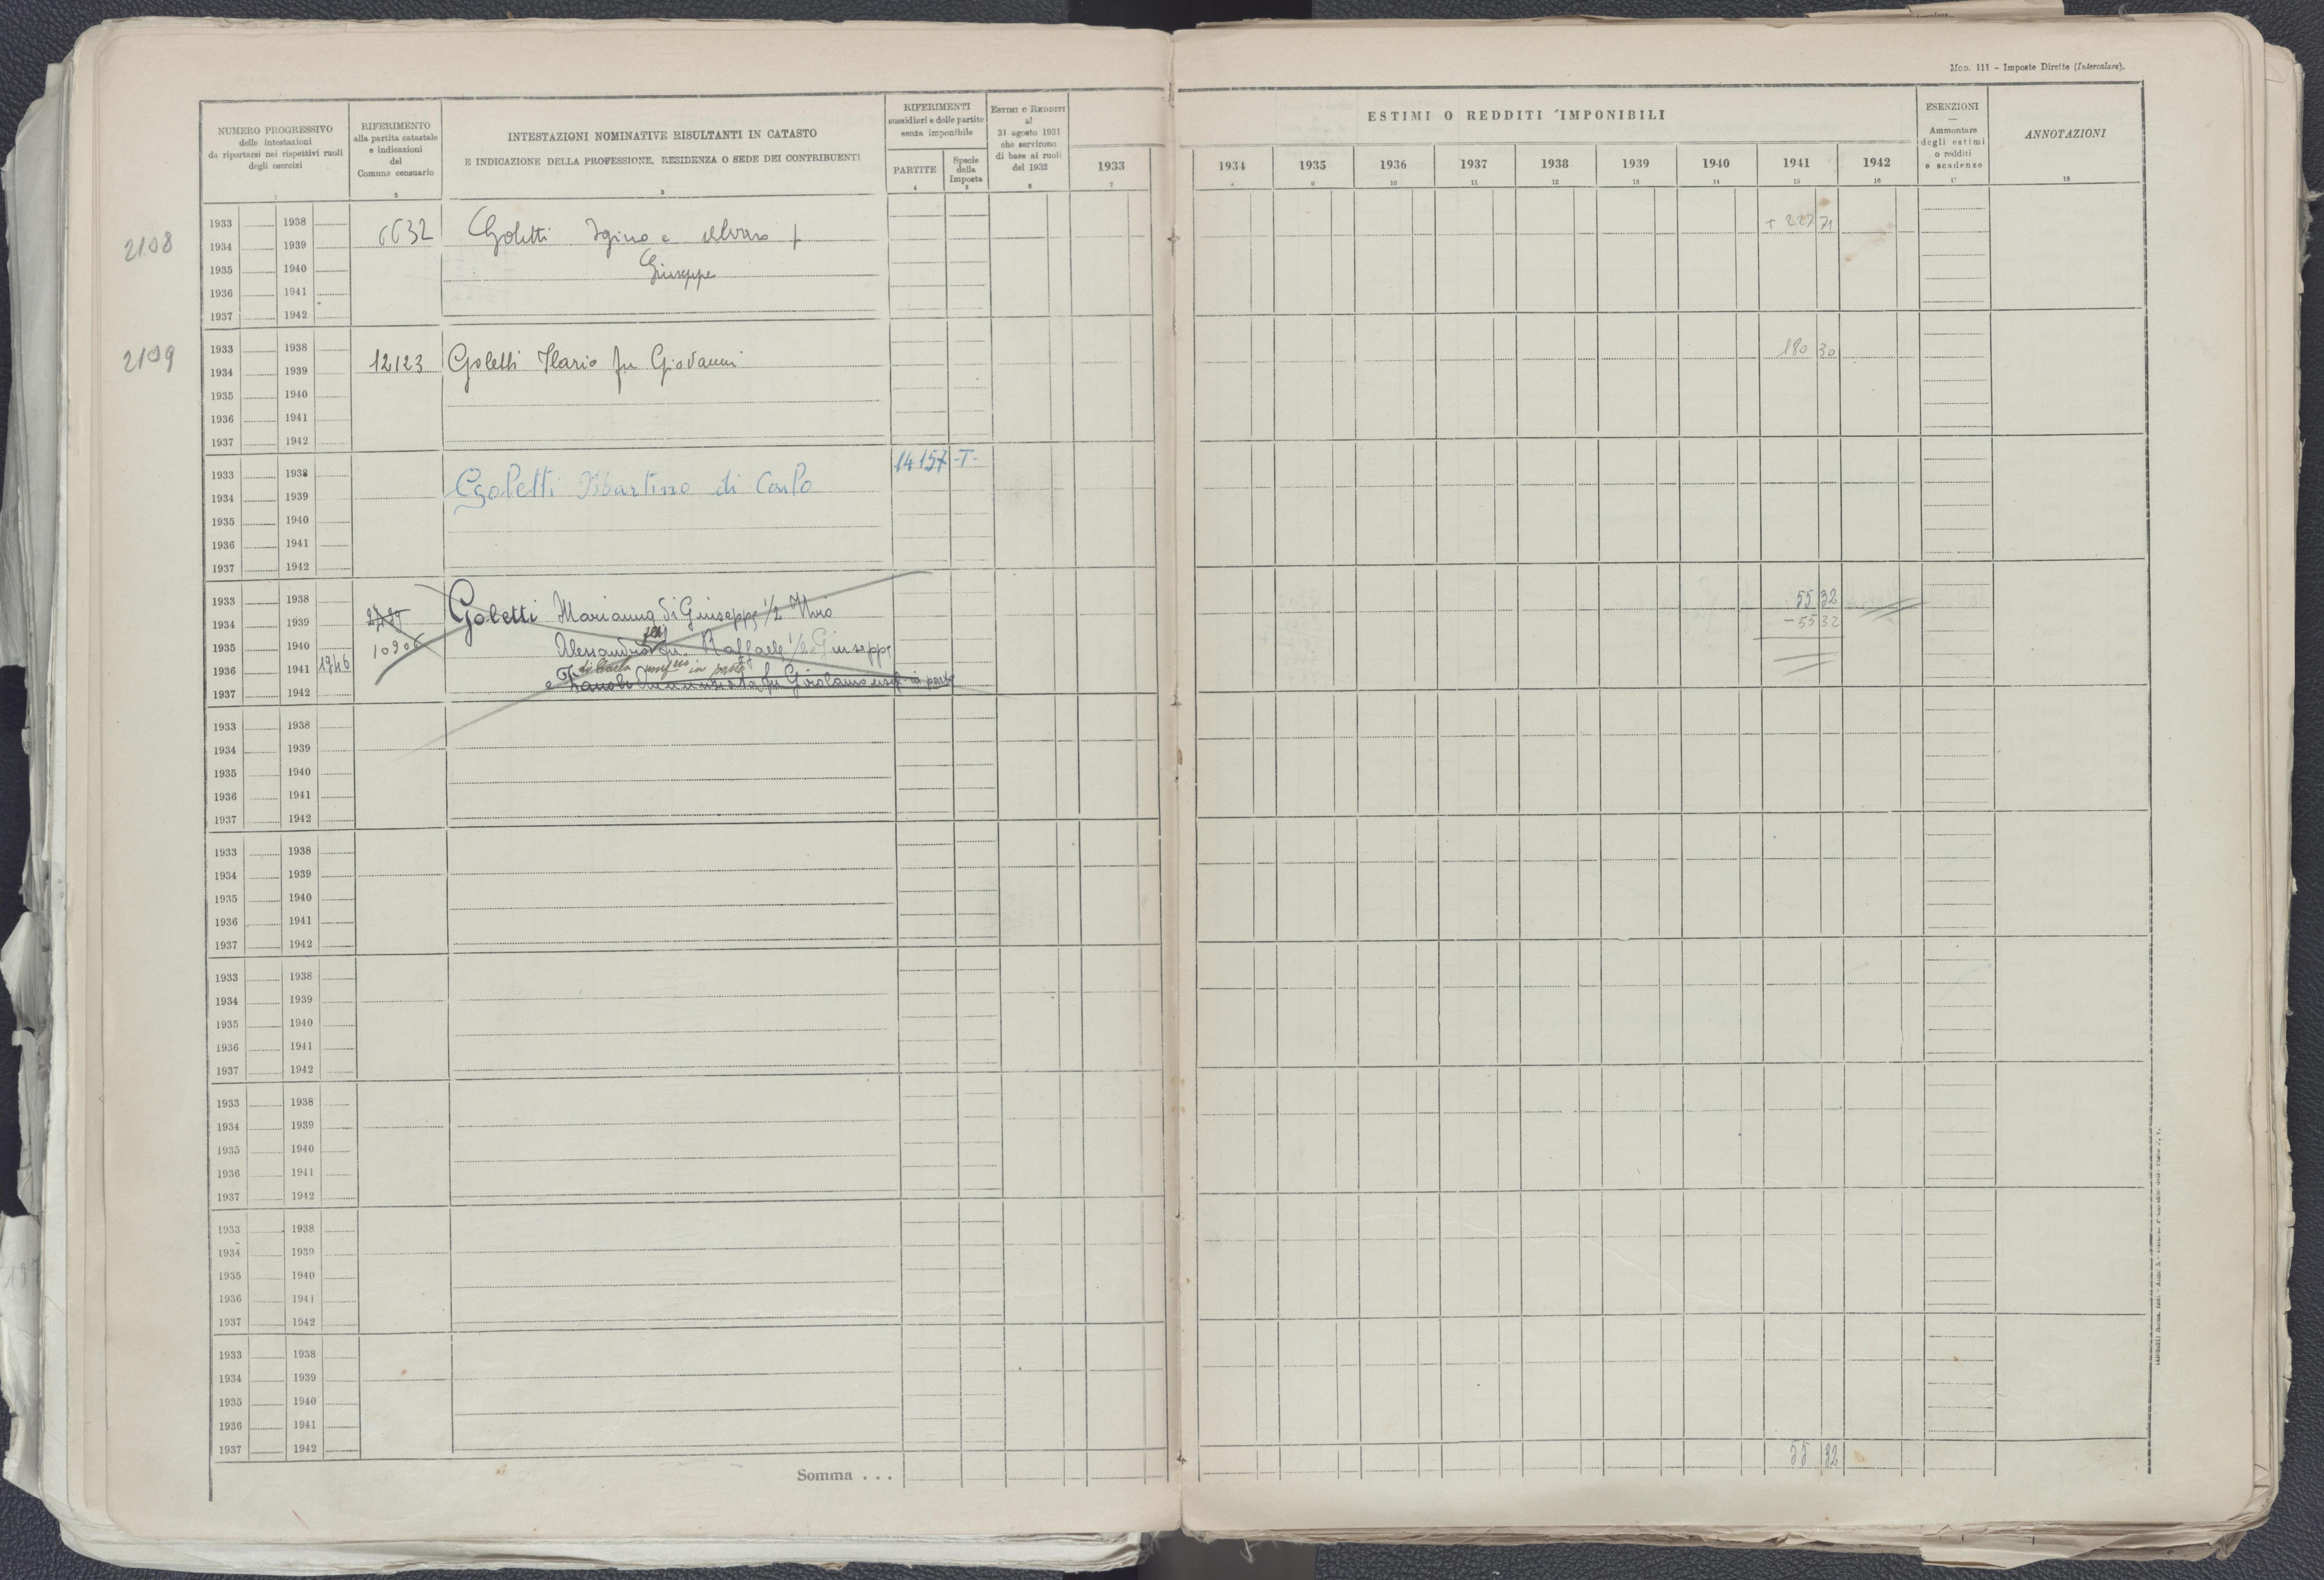 Mod. 111 - Imposte Dirette (Intercalare).
NUMERO PROGRESSIVO
delle intestazioni
da riportarsi nei rispettivi ruoli
degli esercizi
1
RIFERIMENTO
alla partita catastale
e indicazioni
del
Comune censuario
2
INTESTAZIONI NOMINATIVE RISULTANTI IN CATASTO
E INDICAZIONE DELLA PROFESSIONE, RESIDENZA O SEDE DEI CONTRIBUENTI
3
RIFERIMENTI
sussidiari e delle partite
senza imponibile
PARTITE
4
Specie
della
Imposta
5
ESTIMI O REDDITI
al
31 agosto 1931
che servirono
di base ai ruoli
del 1932
6
1933
7
ESTIMI O REDDITI IMPONIBILI
1934 1935 1936 1937 1938 1939 1940 1941 1942
8 9 10 11 12 13 14 15 16
ESENZIONI
Ammontare
degli estimi
o redditi
e scadenze
17
ANNOTAZIONI
18
2108
1933 1938 6632 Goletti Igino e Alvaro f + 227 71
1934 1939
1935 1940 Giuseppe
1936 1941
1937 1942
2109
1933 1938 180 30
1934 1939 12123 Goletti Ilario fu Giovanni
1935 1940
1936 1941
1937 1942
14157 -T-
1933 1938
1934 1939 Goletti Martino di Carlo
1935 1940
1936 1941
1937 1942
1933 1938 Goletti Marianna di Giuseppe 1/2 55 32
1934 1939 - 55 32
1935 1940 10906 Raffaele 1/2 Giuseppe
1936 1941 1746 di Carlo in parte
1937 1942 e Annunziata fu Girolamo in parte
1933 1938
1934 1939
1935 1940
1936 1941
1937 1942
1933 1938
1934 1939
1935 1940
1936 1941
1937 1942
1933 1938
1934 1939
1935 1940
1936 1941
1937 1942
1933 1938
1934 1939
1935 1940
1936 1941
1937 1942
1933 1938
1934 1939
1935 1940
1936 1941
1937 1942
1933 1938
1934 1939
1935 1940
1936 1941
1937 1942
Somma . . . 55 32